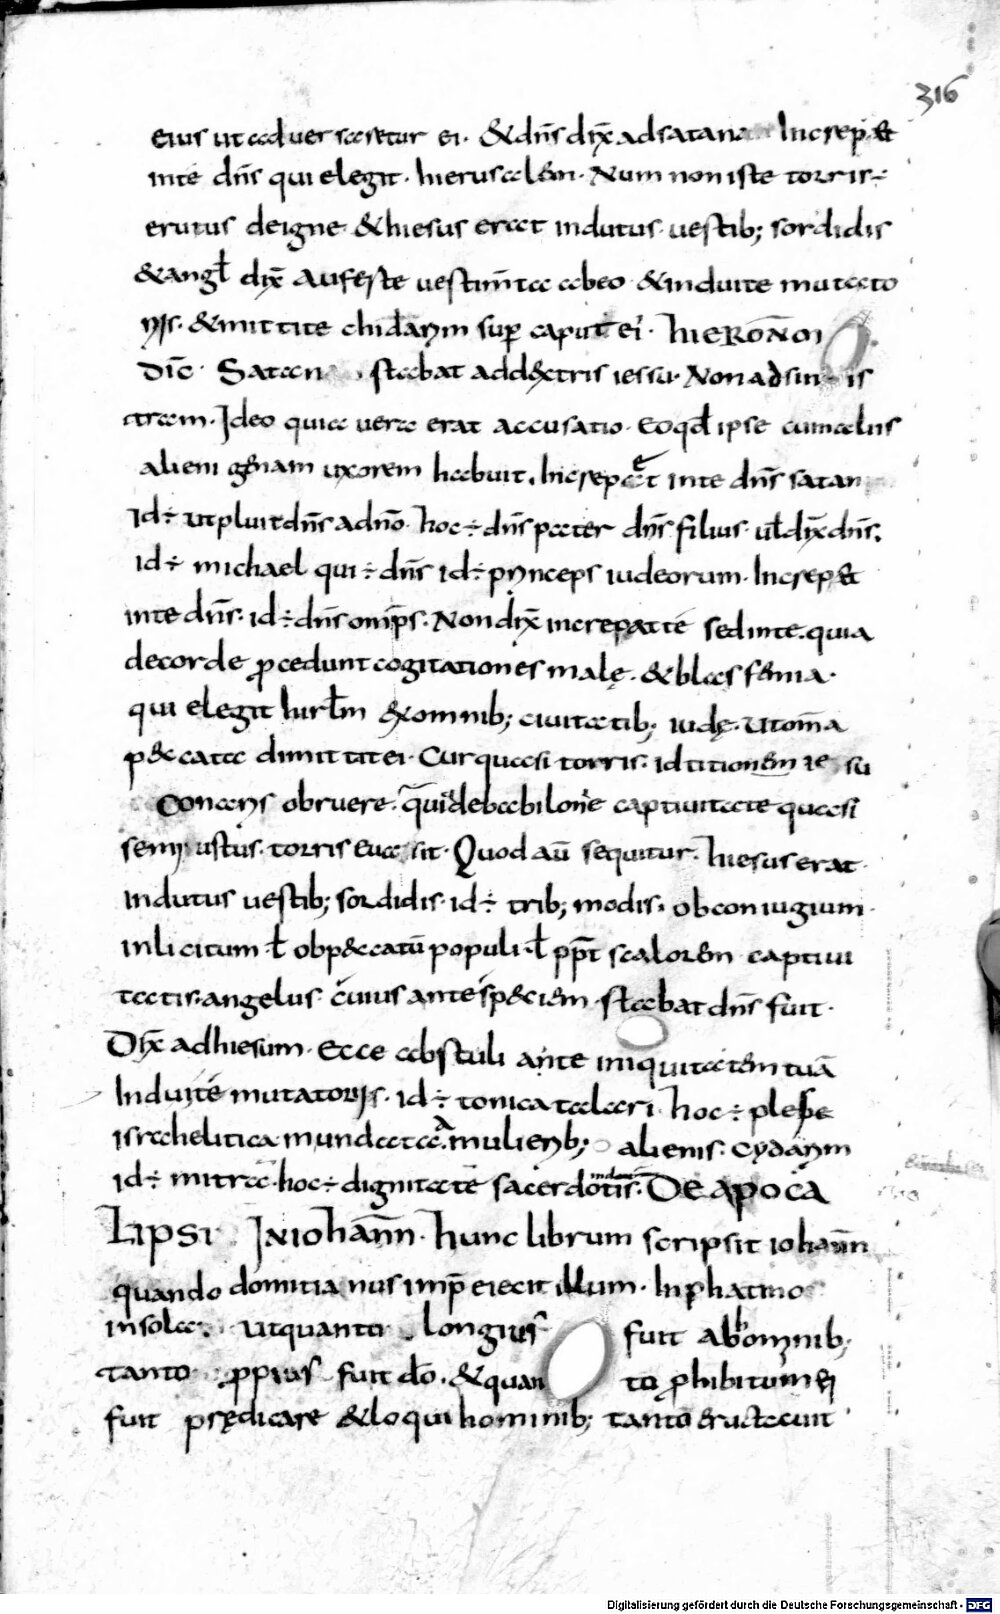 316
eius ut aduersaretur ei · & dn̄s dix̄ ad satana Increp&
in te dn̄s qui elegit · hierusalem · Num non iste torris ÷
erutus de igne · & hiesus erat indutus · uestib; sordidis
& angl̄ dix̄ Auferte uestim̄ta ab eo · & induite mutato
rijs · & mittite chidarym sup̄ caput ei · hieronoi
dic̄ · Satan stabat ad dextris iessu · Non ad sin is
tram · Ideo quia uera erat accusatio · Eo qd̄ ipse cum aliis
alieni genam uxorem habuit · Increpet in te dn̄s satan
Id ÷ ut pluit dn̄s a dn̄o · hoc ÷ dn̄s pater dn̄s filius · ul̄ dix̄ dn̄s ·
id ÷ michael qui ÷ dn̄s id ÷ prynceps iudeorum · Increp&
in te dn̄s · id ÷ dn̄s omīps · Non dix̄ increpat te sed in te · quia
de corde p̄cedunt cogitationes malę · & blasfemia ·
qui elegit hirl̄m & omnib; ciuitatib; iudę · ut om̄a
peccata dimittit ei · Cur quasi torris · id titionem ie su
Conans obruere · qui de babilonie captiuitate quasi
semi ustus · torris euasit · Quod aū sequitur · hiesus erat ·
Indutus uestib; sordidis · id ÷ trib; modis · ob coniugium ·
inlicitum · l̄ ob peccatū populi · l̄ pp̄t scalorem captiui
tatis · angelus · cuius ante speciem · stabat dn̄s fuit ·
Dix̄ ad hiesum · Ecce abstuli ante iniquitatem tuā
Induite mutatorijs · id ÷ tonica talari hoc ÷ plebe
israhelitica mundata A mulierib; alienis · cydarym
id ÷ mitra · hoc ÷ dignitate sacerdotis · De apoca
Lipsi In iohann̄ · hunc librum scripsit iohann̄
quando domitianus imp̄ eiecit illum · In phatmo
insola · ut quanto longius fuit ab homnib;
tanto p̄pius fuit dō · & quan to p̄hibitum ei
fuit prędicare & loqui hominib; tanto eructauit
Digitalisierung gefördert durch die Deutsche Forschungsgemeinschaft - DFG